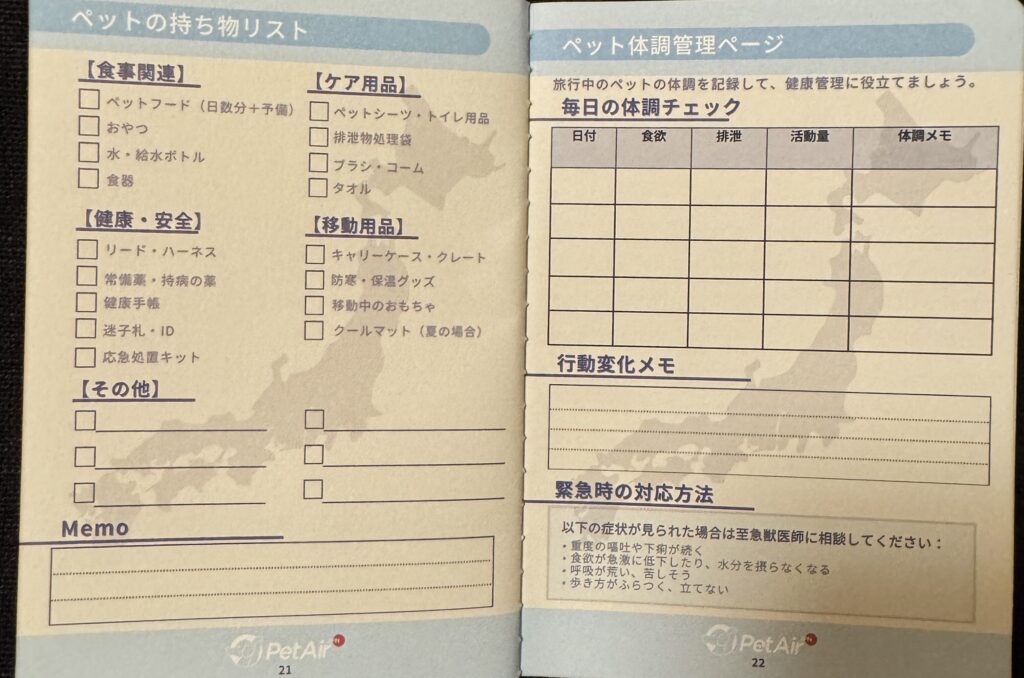 ペットの持ち物リスト
【食事関連】
ペットフード（日数分＋予備）
おやつ
水・給水ボトル
食器
【ケア用品】
ペットシーツ・トイレ用品
排泄物処理袋
ブラシ・コーム
タオル
【健康・安全】
リード・ハーネス
常備薬・持病の薬
健康手帳
迷子札・ID
応急処置キット
【移動用品】
キャリーケース・クレート
防寒・保温グッズ
移動中のおもちゃ
クールマット（夏の場合）
【その他】
Memo
PetAir
21
ペット体調管理ページ
旅行中のペットの体調を記録して、健康管理に役立てましょう。
毎日の体調チェック
日付 食欲 排泄 活動量 体調メモ
行動変化メモ
緊急時の対応方法
以下の症状が見られた場合は至急獣医師に相談してください：
・重度の嘔吐や下痢が続く
・食欲が急激に低下したり、水分を摂らなくなる
・呼吸が荒い、苦しそう
・歩き方がふらつく、立てない
PetAir
22